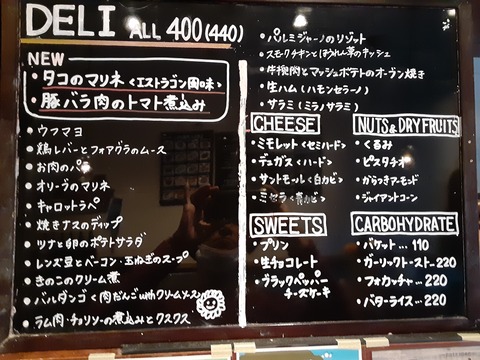 DELI ALL 400(440)
NEW
・タコのマリネ<エストラゴン風味>
・豚バラ肉のトマト煮込み
・ウフマヨ
・鶏レバーとフォアグラのムース
・お肉のパテ
・オリーブのマリネ
・キャロットラペ
・焼きナスのディップ
・ツナと卵のポテトサラダ
・レンズ豆とベーコン・玉ねぎのスープ
・きのこのクリーム煮
・バルダンゴ<肉だんごwithクリームソース>
・ラム肉・チョリソーの煮込みとクスクス
・パルミジャーノのリゾット
・スモークチキンとほうれん草のキッシュ
・牛挽肉とマッシュポテトのオーブン焼き
・生ハム(ハモンセラーノ)
・サラミ(ミラノサラミ)
CHEESE
・ミモレット<セミハード>
・デュガス<ハード>
・サントモール<白カビ>
・ミセラ<青カビ>
NUTS&DRY FRUITS
・くるみ
・ピスタチオ
・からつきアーモンド
・ジャイアントコーン
SWEETS
・プリン
・生チョコレート
・ブラックペッパー
チーズケーキ
CARBOHYDRATE
・バケット…110
・ガーリックトースト…220
・フォカッチャ…220
・バターライス…220